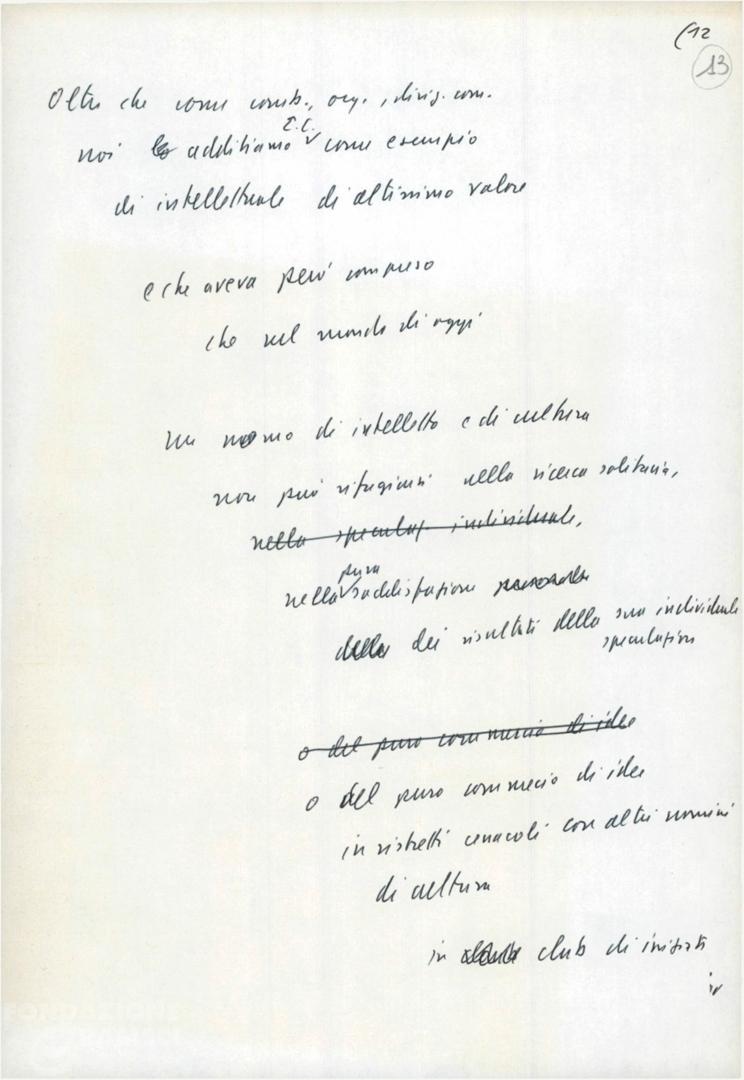 (12
13
Oltre che come comb., org., dirig. com.
E.C.
noi lo additiamo come esempio
di intellettuale di altissimo valore
e che aveva però compreso
che nel mondo di oggi
un uomo di intelletto e di cultura
non può rifugiarsi nella ricerca solitaria,
nella speculaz. individuale,
pura
nella soddisfazione personale
della dei risultati della sua individuale
speculazione
o del puro commercio di idee
o del puro commercio di idee
in ristretti cenacoli con altri uomini
di cultura
in club di iniziati
FONDAZIONE